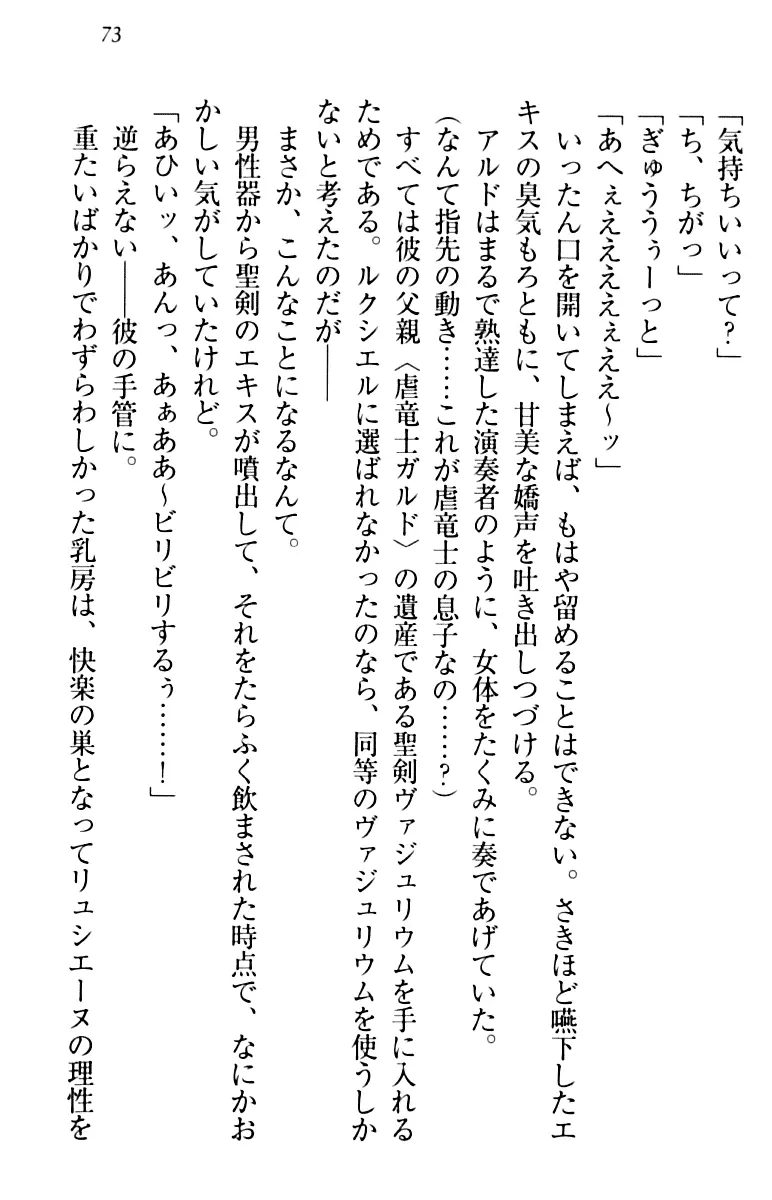 73
「気持ちいいって？」
「ち、ちがっ」
「ぎゅううぅーっと」
「あへぇえええぇええ～ッ」
　いったん口を開いてしまえば、もはや留めることはできない。さきほど嚥下したエ
キスの臭気もろともに、甘美な嬌声を吐き出しつづける。
　アルドはまるで熟達した演奏者のように、女体をたくみに奏であげていた。
（なんて指先の動き……これが虐竜士の息子なの……？）
　すべては彼の父親〈虐竜士ガルド〉の遺産である聖剣ヴァジュリウムを手に入れる
ためである。ルクシエルに選ばれなかったのなら、同等のヴァジュリウムを使うしか
ないと考えたのだが――
　まさか、こんなことになるなんて。
　男性器から聖剣のエキスが噴出して、それをたらふく飲まされた時点で、なにかお
かしい気がしていたけれど。
「あひいッ、あんっ、あぁああ～ビリビリするぅ……！」
　逆らえない――彼の手管に。
　重たいばかりでわずらわしかった乳房は、快楽の巣となってリュシエーヌの理性を